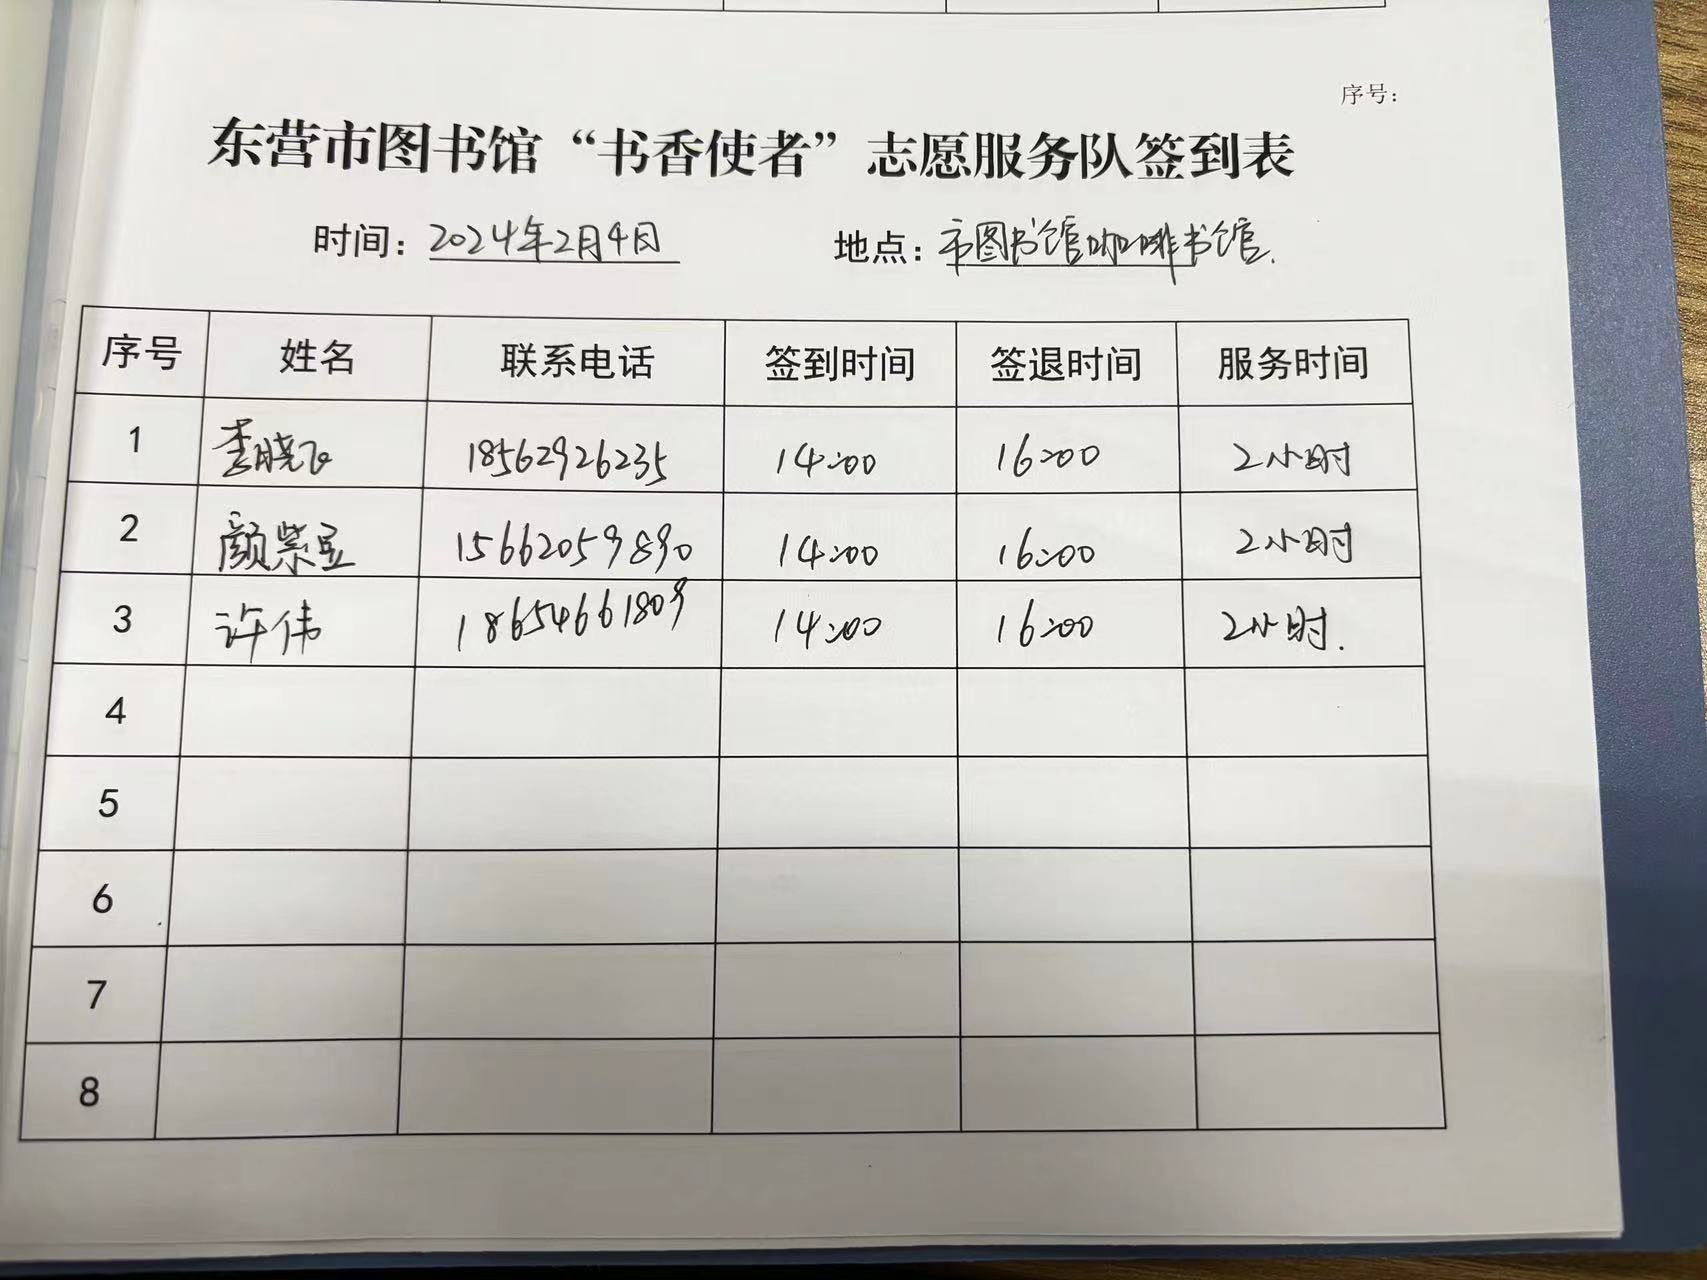 序号：
东营市图书馆“书香使者”志愿服务队签到表
时间：2024年2月4日 地点：市图书馆咖啡书馆.
序号 姓名 联系电话 签到时间 签退时间 服务时间
1 李晓飞 18562926235 14:00 16:00 2小时
2 颜紫昱 15662059890 14:00 16:00 2小时
3 许伟 18654661809 14:00 16:00 2小时.
4
5
6
7
8